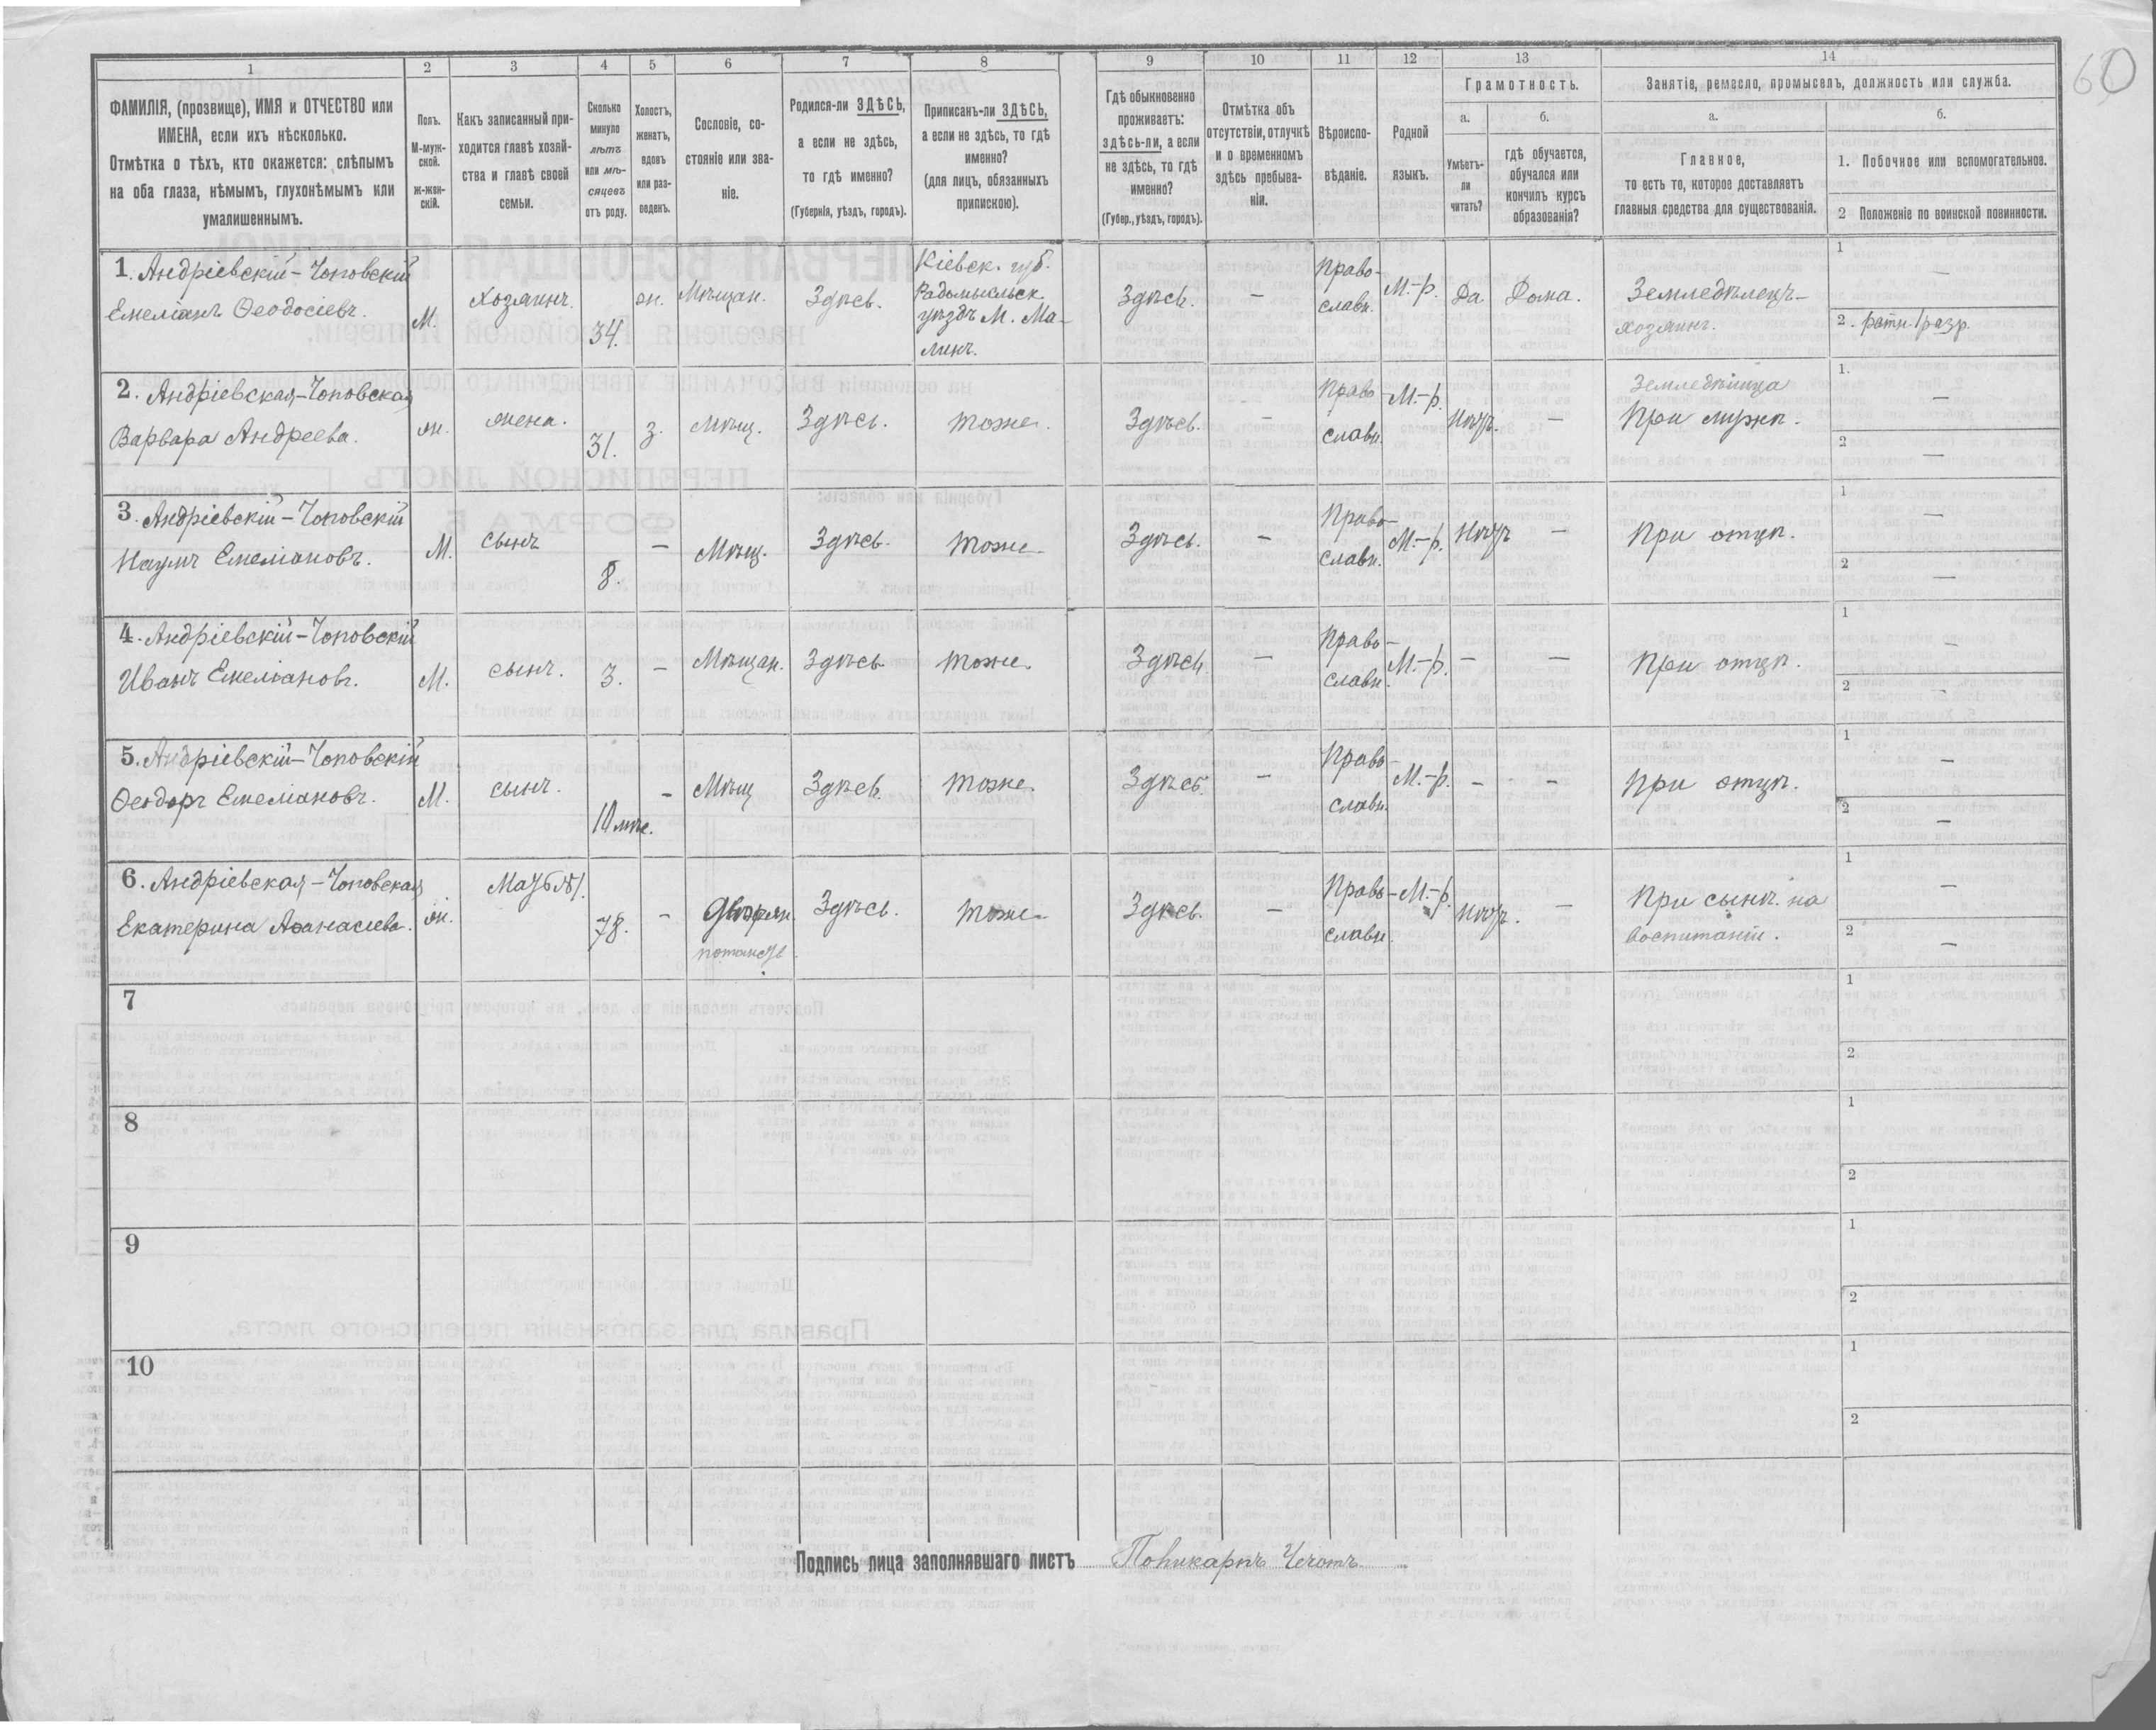 60
1 2 3 4 5 6 7 8 9 10 11 12 13 14
ФАМИЛІЯ, (прозвище), ИМЯ и ОТЧЕСТВО или
ИМЕНА, если ихъ нѣсколько.
Отмѣтка о тѣхъ, кто окажется: слѣпымъ
на оба глаза, нѣмымъ, глухонѣмымъ или
умалишеннымъ.
Полъ.
М-муж-
ской.
ж-жен-
скій.
Какъ записанный при-
ходится главѣ хозяй-
ства и главѣ своей
семьи.
Сколько
минуло
лѣтъ
или мѣ-
сяцевъ
отъ роду.
Холостъ,
женатъ,
вдовъ
или раз-
веденъ.
Сословіе, со-
стояніе или зва-
ніе.
Родился-ли ЗДѢСЬ,
а если не здѣсь,
то гдѣ именно?
(Губернія, уѣздъ, городъ).
Приписанъ-ли ЗДѢСЬ,
а если не здѣсь, то гдѣ
именно?
(для лицъ, обязанныхъ
припискою).
Гдѣ обыкновенно
проживаетъ:
здѣсь-ли, а если
не здѣсь, то гдѣ
именно?
(Губер., уѣздъ, городъ).
Отмѣтка объ
отсутствіи, отлучкѣ
и о временномъ
здѣсь пребыва-
ніи.
Вѣроиспо-
вѣданіе.
Родной
языкъ.
Грамотность.
а.
Умѣетъ-
ли
читать?
б.
гдѣ обучается,
обучался или
кончилъ курсъ
образованія?
Занятіе, ремесло, промыселъ, должность или служба.
а.
Главное,
то есть то, которое доставляетъ
главныя средства для существованія.
б.
1. Побочное или вспомогательное.
2 Положеніе по воинской повинности.
1. Андріевскій-Чоповскій
Емеліанъ Ѳеодосіевъ.
М.
Хозяинъ.
34.
жн.
Мѣщан.
Здѣсь.
Кіевск. губ.
Радомысльск.
уѣздъ М. Ма-
линъ.
Здѣсь.
—
Право-
славн.
М.-р.
Да
Дома.
Земледѣлецъ-
хозяинъ.
1
—
2. ратн. 1 разр.
2. Андріевская-Чоповская
Варвара Андреева.
жн.
жена.
31.
з.
Мѣщ.
Здѣсь.
тоже.
Здѣсь.
—
Право-
славн.
М.-р.
Нѣтъ.
—
Земледѣлица
При мужѣ.
1.
—
2
—
3. Андріевскій-Чоповскій
Наумъ Емеліановъ.
М.
сынъ
8.
—
Мѣщ.
Здѣсь.
тоже.
Здѣсь.
—
Право-
славн.
М.-р.
Нѣтъ
—
При отцѣ.
1
—
2
—
4. Андріевскій-Чоповскій
Иванъ Емеліановъ.
М.
сынъ.
3.
—
Мѣщан.
Здѣсь
тоже.
Здѣсь.
—
Право-
славн.
М.-р.
—
—
При отцѣ.
1
—
2
—
5. Андріевскій-Чоповскій
Ѳеодоръ Емеліановъ.
М.
сынъ.
10 мѣс.
-
Мѣщ
Здѣсь.
тоже.
Здѣсь.
—
Право-
славн.
М.-р.
-
-
При отцѣ.
1
—
2
—
6. Андріевская-Чоповская
Екатерина Аѳанасіева.
жн.
Мать №1.
78.
-
Дворян.
потомств.
Здѣсь.
тоже.
Здѣсь.
—
Право-
славн.
М.-р.
Нѣтъ.
—
При сынѣ на
воспитаніи.
1
—
2
—
7
1
2
8
1
2
9
1
2
10
1
2
Подпись лица заполнявшаго листъ Поликарпъ Чечотъ